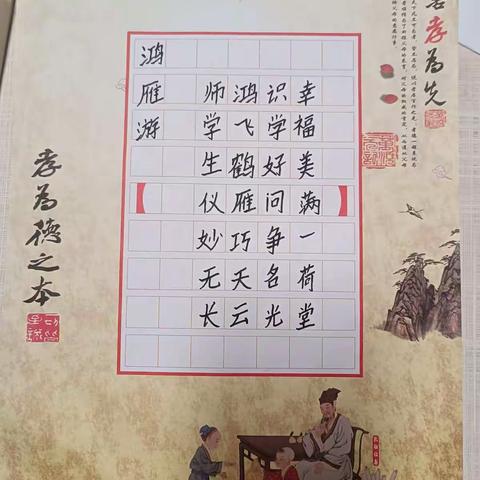 鸿雁游
师学生仪妙无长
鸿飞鹤雁巧天云
识学好问争名光
幸福美满一荷堂
孝为先
孝为德之本